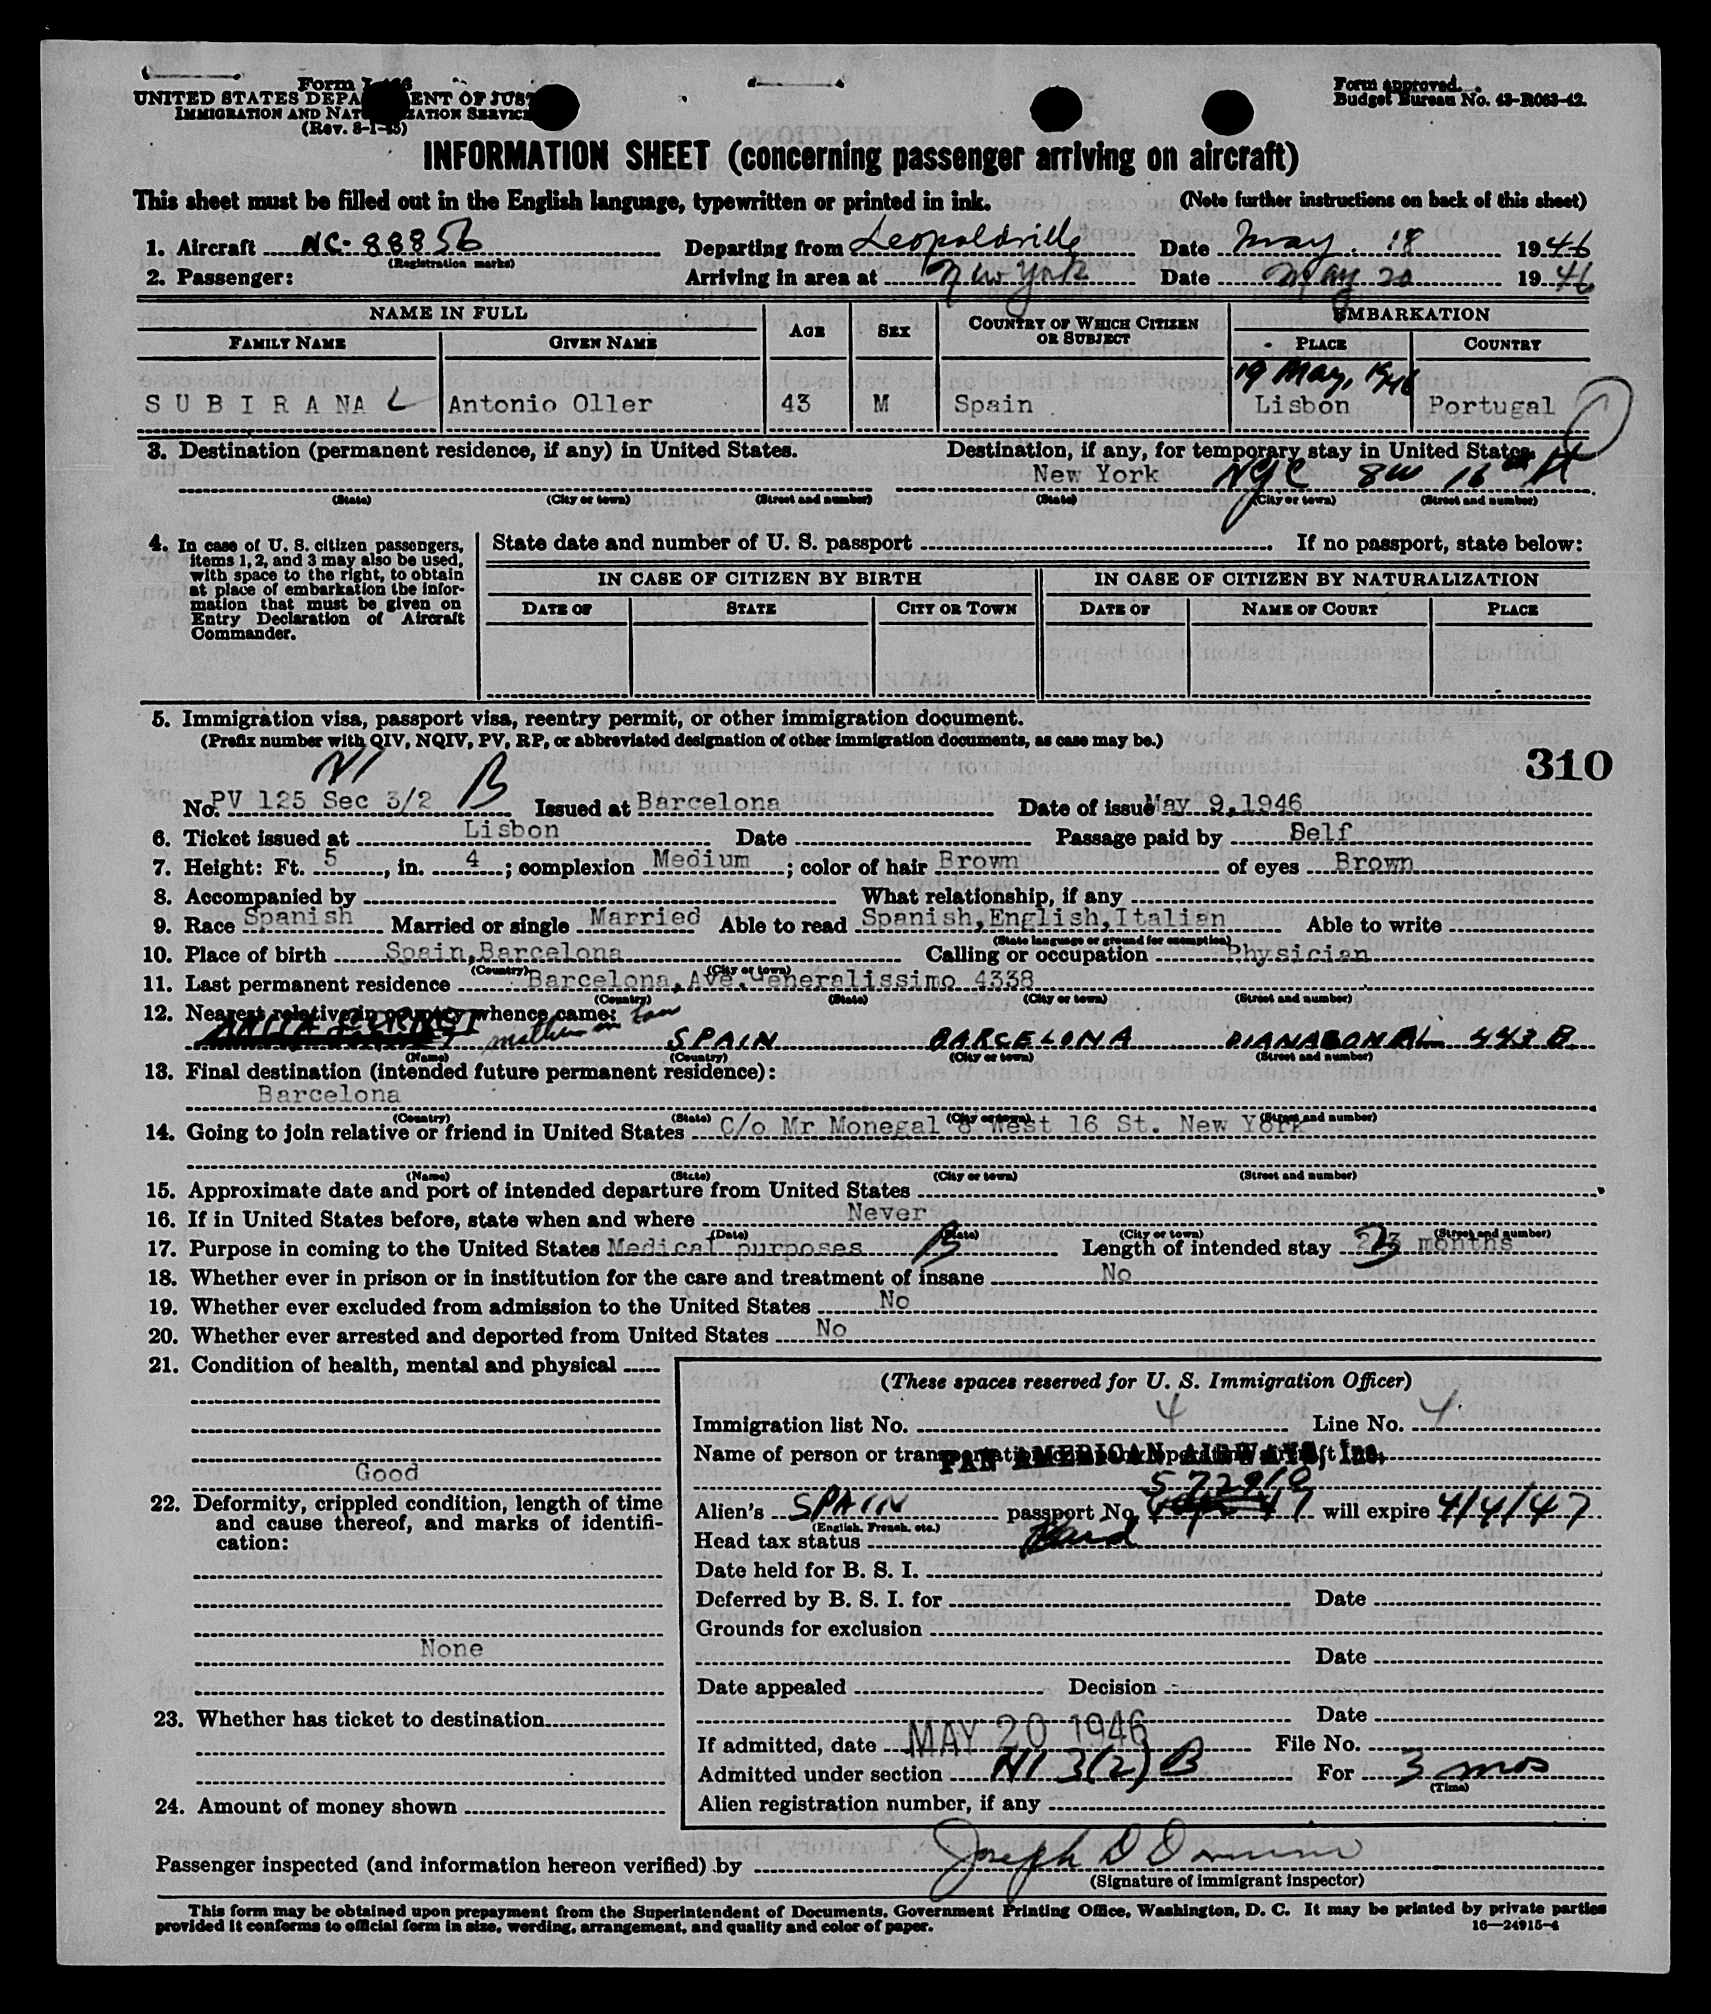 Form I-466
UNITED STATES DEPARTMENT OF JUSTICE
IMMIGRATION AND NATURALIZATION SERVICE
(Rev. 8-1-45)
Form approved.
Budget Bureau No. 43-R063-42.
INFORMATION SHEET (concerning passenger arriving on aircraft)
This sheet must be filled out in the English language, typewritten or printed in ink. (Note further instructions on back of this sheet)
1. Aircraft NC-88856 Departing from Leopoldville Date May 18 1946
(Registration marks)
2. Passenger: Arriving in area at New York Date May 20 1946
NAME IN FULL AGE SEX COUNTRY OF WHICH CITIZEN OR SUBJECT EMBARKATION
FAMILY NAME GIVEN NAME PLACE COUNTRY
19 May, 1946
SUBIRANA Antonio Oller 43 M Spain Lisbon Portugal
3. Destination (permanent residence, if any) in United States. Destination, if any, for temporary stay in United States.
New York NYC 8W 16 St
(State) (City or town) (Street and number) (State) (City or town) (Street and number)
4. In case of U. S. citizen passengers, items 1, 2, and 3 may also be used, with space to the right, to obtain at place of embarkation the information that must be given on Entry Declaration of Aircraft Commander.
State date and number of U. S. passport If no passport, state below:
IN CASE OF CITIZEN BY BIRTH IN CASE OF CITIZEN BY NATURALIZATION
DATE OF STATE CITY OR TOWN DATE OF NAME OF COURT PLACE
5. Immigration visa, passport visa, reentry permit, or other immigration document.
(Prefix number with QIV, NQIV, PV, RP, or abbreviated designation of other immigration documents, as case may be.)
310
NI B
No. PV 125 Sec 3/2 Issued at Barcelona Date of issue May 9,1946
6. Ticket issued at Lisbon Date Passage paid by Self
7. Height: Ft. 5, in. 4; complexion Medium; color of hair Brown of eyes Brown
8. Accompanied by What relationship, if any
9. Race Spanish Married or single Married Able to read Spanish,English,Italian Able to write
(State language or ground for exemption)
10. Place of birth Spain,Barcelona Calling or occupation Physician
(Country) (City or town)
11. Last permanent residence Barcelona,Ave.Generalissimo 4338
(Country) (State) (City or town) (Street and number)
12. Nearest relative in country whence came:
mother in law SPAIN BARCELONA DIANAGONAL 443 B.
(Name) (Country) (City or town) (Street and number)
13. Final destination (intended future permanent residence):
Barcelona
(Country) (State) (City or town) (Street and number)
14. Going to join relative or friend in United States C/o Mr Monegal 8 West 16 St. New York
(Name) (State) (City or town) (Street and number)
15. Approximate date and port of intended departure from United States
16. If in United States before, state when and where Never
(Date) (State) (City or town) (Street and number)
17. Purpose in coming to the United States Medical purposes B Length of intended stay 3 months
18. Whether ever in prison or in institution for the care and treatment of insane No
19. Whether ever excluded from admission to the United States No
20. Whether ever arrested and deported from United States No
21. Condition of health, mental and physical
Good
22. Deformity, crippled condition, length of time and cause thereof, and marks of identification:
None
23. Whether has ticket to destination
24. Amount of money shown
(These spaces reserved for U. S. Immigration Officer)
Immigration list No. 4 Line No. 4
Name of person or transportation company operating aircraft
PAN AMERICAN AIRWAYS, Inc.
572910
Alien's SPAIN passport No. will expire 4/4/47
(English, French, etc.)
Head tax status
Date held for B. S. I.
Deferred by B. S. I. for Date
Grounds for exclusion
Date
Date appealed Decision
Date
If admitted, date MAY 20 1946 File No.
Admitted under section NI 3(2) B For 3 mos
(Time)
Alien registration number, if any
Passenger inspected (and information hereon verified) by Joseph D
(Signature of immigrant inspector)
This form may be obtained upon prepayment from the Superintendent of Documents, Government Printing Office, Washington, D. C. It may be printed by private parties
provided it conforms to official form in size, wording, arrangement, and quality and color of paper. 16—24915-4